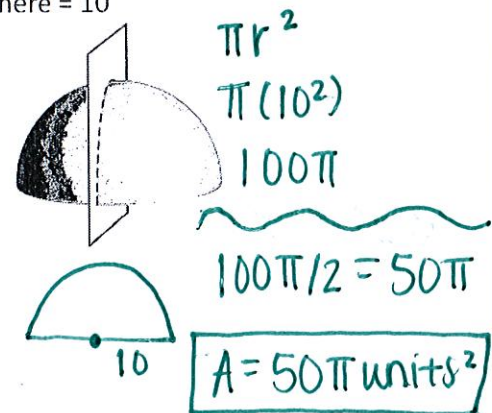 = 10
πr²
π(10²)
100π
100π/2 = 50π
10
A = 50π units²